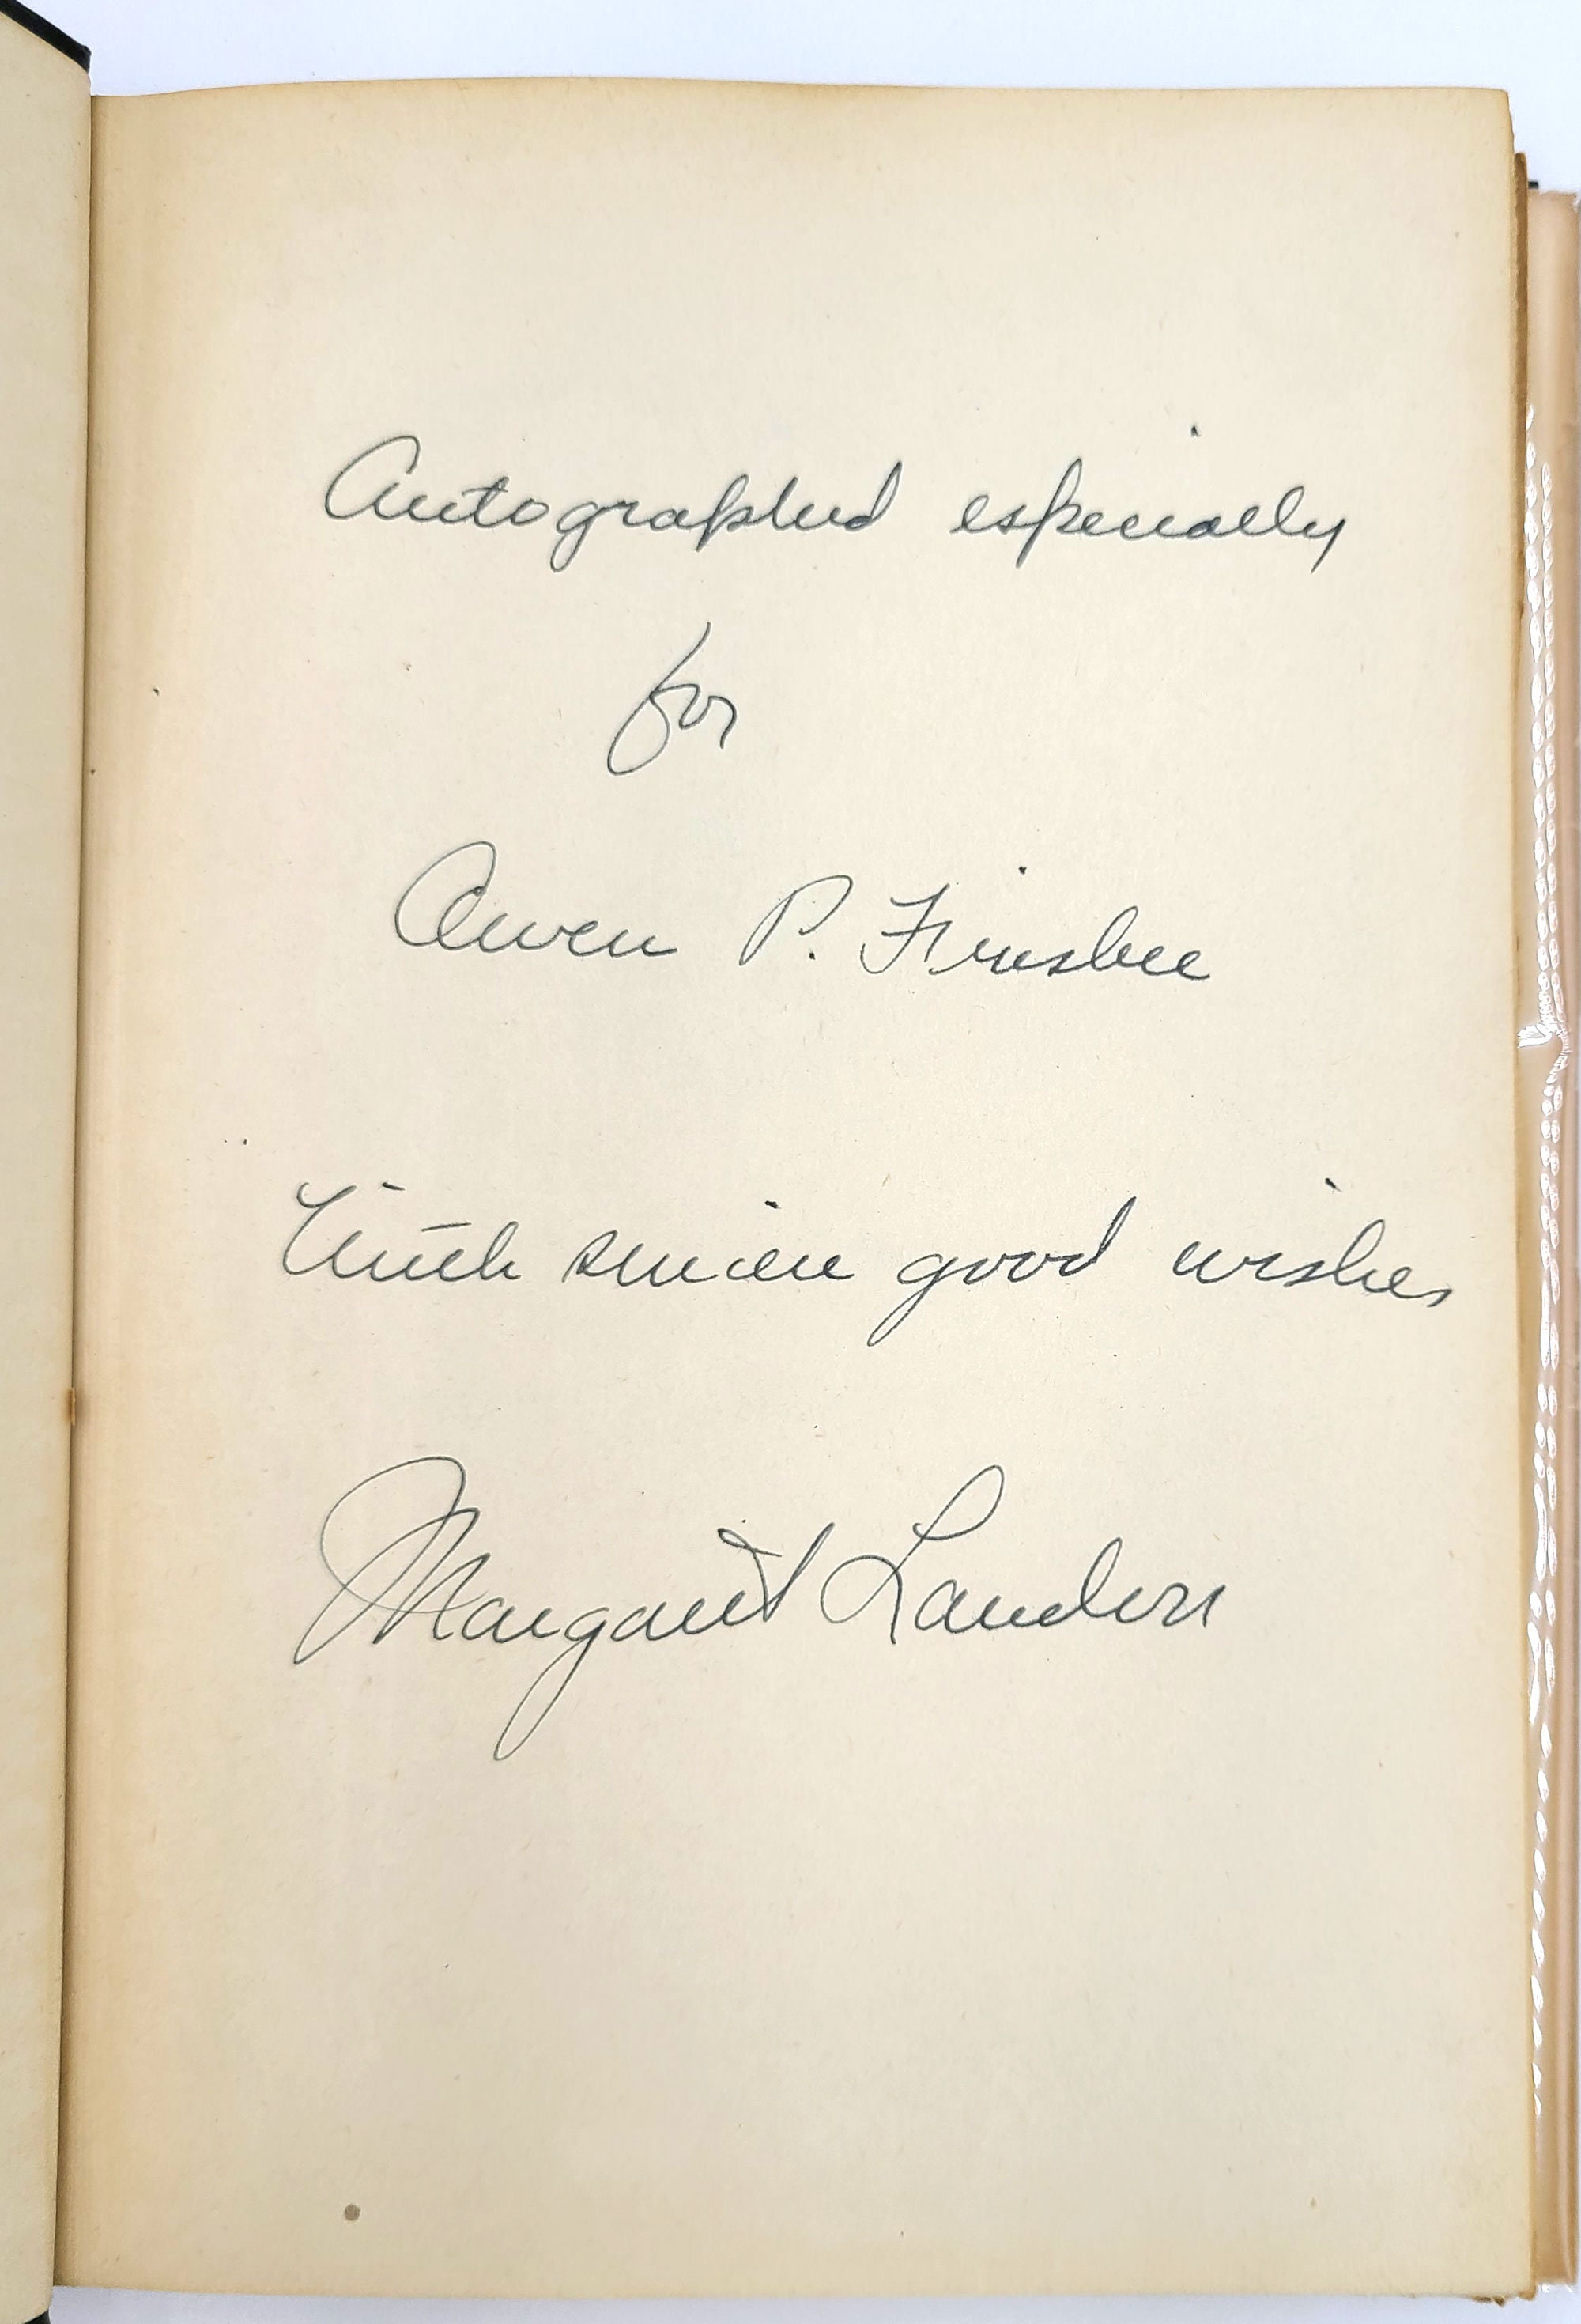 Autographed especially
for
Owen P. Frisbee
With sincere good wishes
Margaret Landon